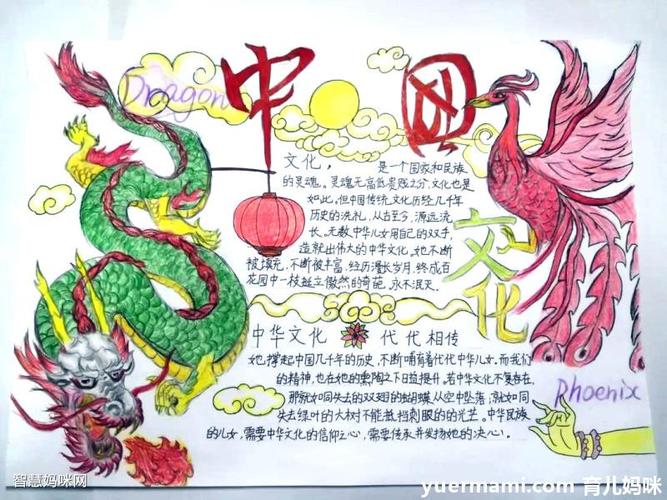 Dragon
中国
文化
文化，是一个国家和民族
的灵魂。灵魂无高低贵贱之分，文化也是
如此。但中国传统文化历经几千年
历史的洗礼，从古至今，源远流
长。无数中华儿女用自己的双手，
造就出伟大的中华文化。她不断
被填充，不断被丰富，经历漫长岁月，终成百
花园中一枝挺立傲然的奇葩，永不泯灭。
中华文化 代代相传
她撑起中国几千年的历史，不断哺育着代代中华儿女。而我们
的精神，也在她的熏陶之下日益提升。若中华文化不复存在，
那就如同失去的双翅的蝴蝶从空中坠落；就如同
失去绿叶的大树不能抵挡刺眼的的光芒。中华民族
的儿女，需要中华文化的信仰之心，需要传承并发扬她的决心！
Phoenix
智慧妈咪网
yuermami.com 育儿妈咪